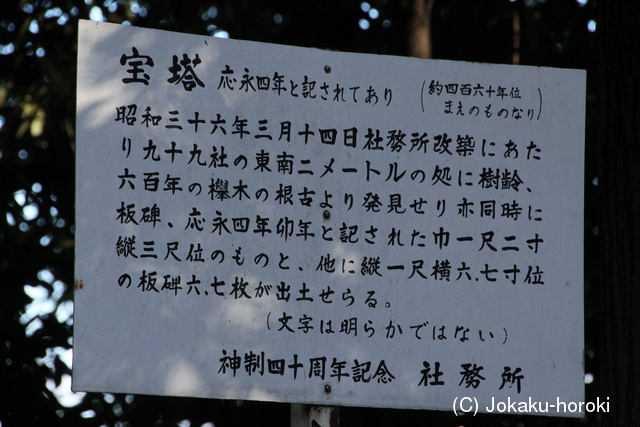 宝塔 応永四年と記されてあり (約四百六十年位
まえのものなり)
昭和三十六年三月十四日社務所改築にあた
り九十九社の東南二メートルの処に樹齢、
六百年の欅木の根古より発見せり亦同時に
板碑、応永四年卯年と記された巾一尺二寸
縦三尺位のものと、他に縦一尺横六、七寸位
の板碑六、七枚が出土せらる。
(文字は明らかではない)
神制四十周年記念 社務所
(C) Jokaku-horoki